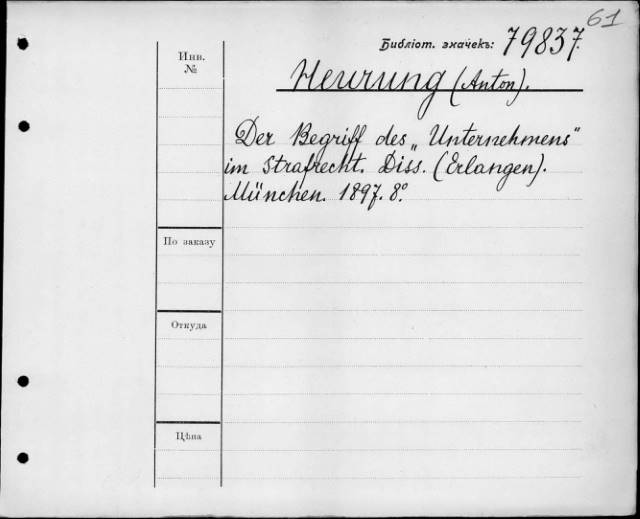 61
Библіот. значекъ: 79837.
Инв.
№
Heurung (Anton).
Der Begriff des „Unternehmens“
im Strafrecht. Diss. (Erlangen).
München. 1897. 8°.
По заказу
Откуда
Цѣна